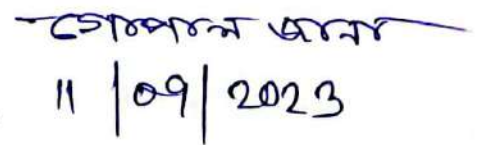 গোপাল জানা
11/09/2023